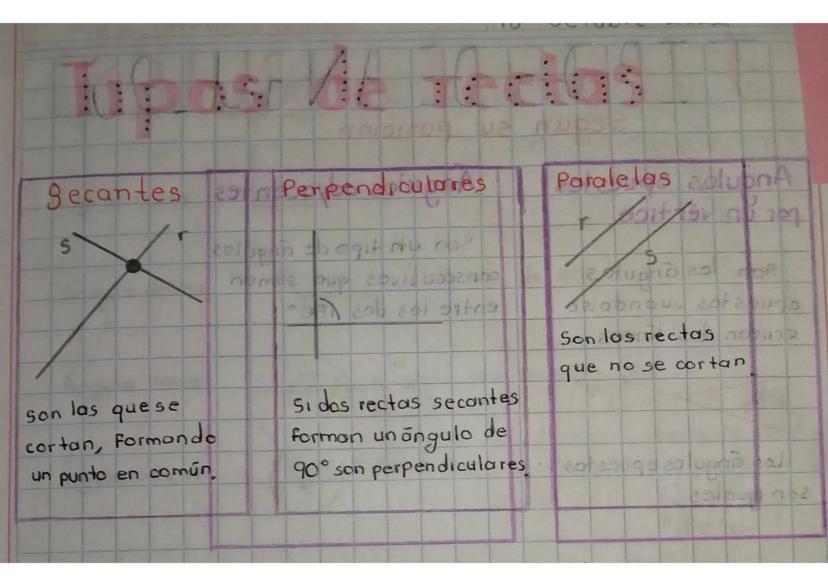 Tipos de rectas
Secantes
s
r
son las que se
cortan, formando
un punto en común.
Perpendiculares
Si dos rectas secantes
forman un ángulo de
90° son perpendiculares.
Paralelas
r
s
Son las rectas
que no se cortan